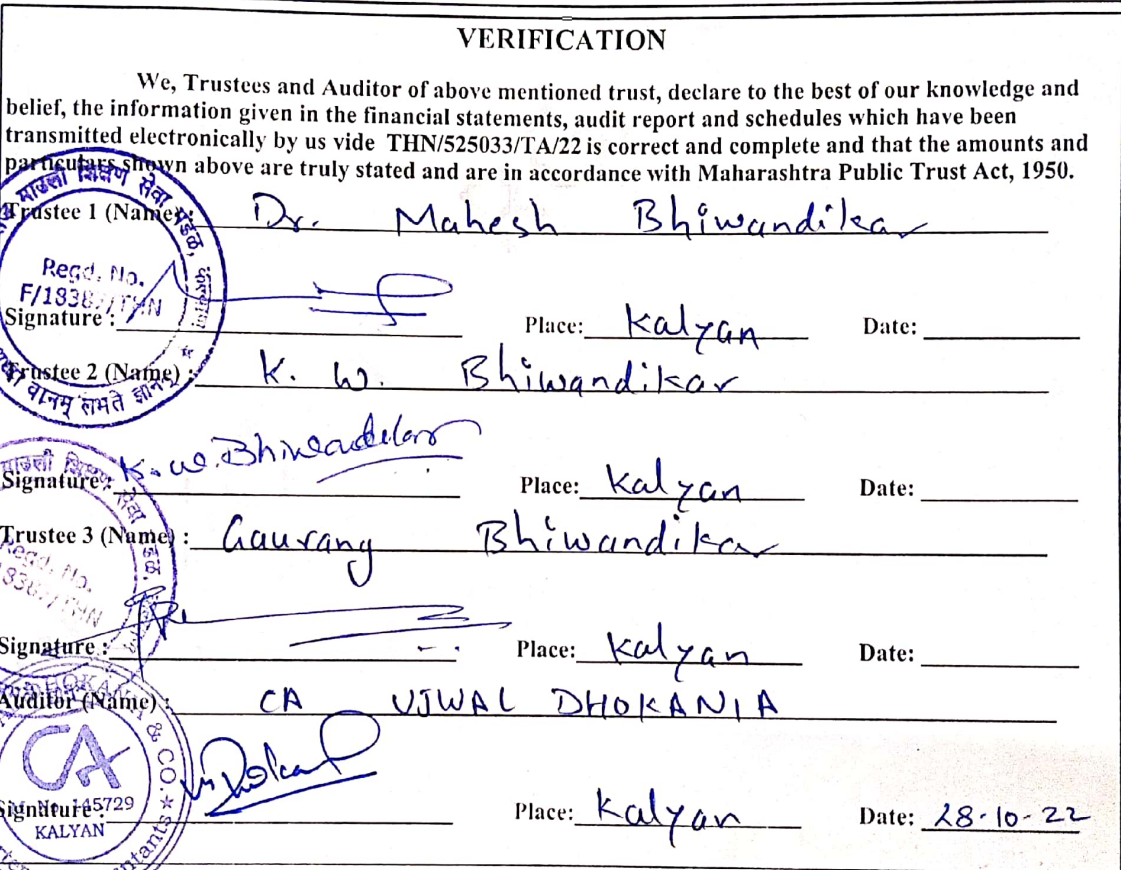 VERIFICATION
We, Trustees and Auditor of above mentioned trust, declare to the best of our knowledge and
belief, the information given in the financial statements, audit report and schedules which have been
transmitted electronically by us vide THN/525033/TA/22 is correct and complete and that the amounts and
particulars shown above are truly stated and are in accordance with Maharashtra Public Trust Act, 1950.
माउली शिक्षण सेवा मंडळ,
Trustee 1 (Name) : Dr. Mahesh Bhiwandikar
Regd. No.
Signature : Place: Kalyan Date:
Trustee 2 (Name) : K. W. Bhiwandikar
लभते
K. W. Bhiwandikar
माउली शिक्षण सेवा
Signature : Place: Kalyan Date:
Trustee 3 (Name) : Gaurang Bhiwandikar
Regd. No.
Signature : Place: Kalyan Date:
Auditor (Name) : CA UJWAL DHOKANIA
& CO.
CA
Signature : Place: Kalyan Date: 28-10-22
145729
KALYAN